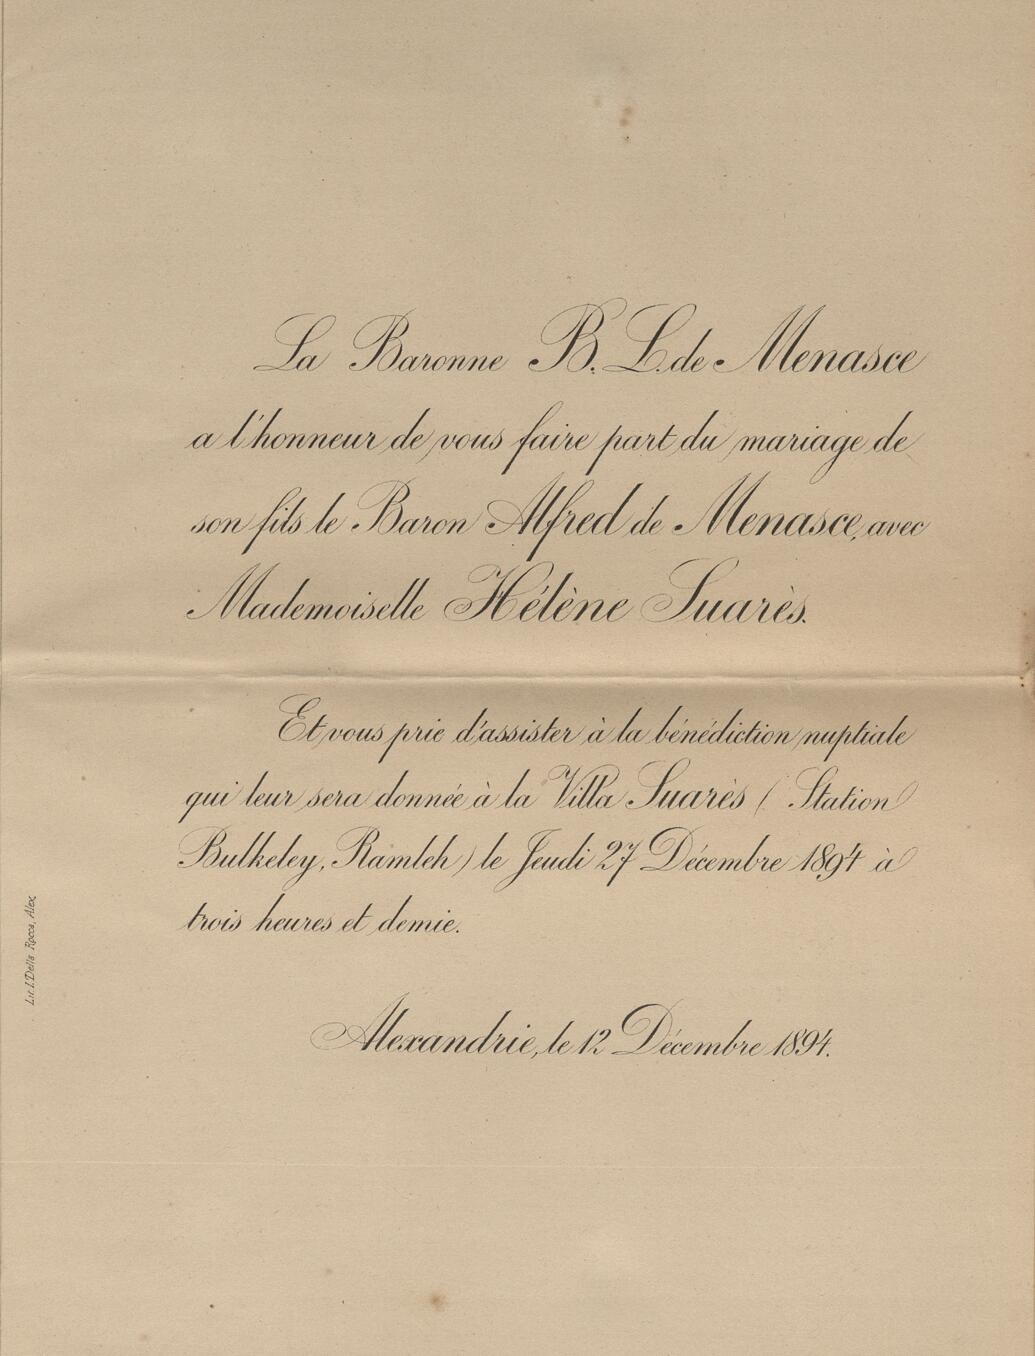 La Baronne B. L. de Menasce
a l'honneur de vous faire part du mariage de
son fils le Baron Alfred de Menasce, avec
Mademoiselle Hélène Suarès.
Et vous prie d'assister à la bénédiction nuptiale
qui leur sera donnée à la Villa Suarès ( Station
Bulkeley, Ramleh ) le Jeudi 27 Décembre 1894 à
trois heures et demie.
Alexandrie, le 12 Décembre 1894.
Lit. I. Della Rocca, Alex.